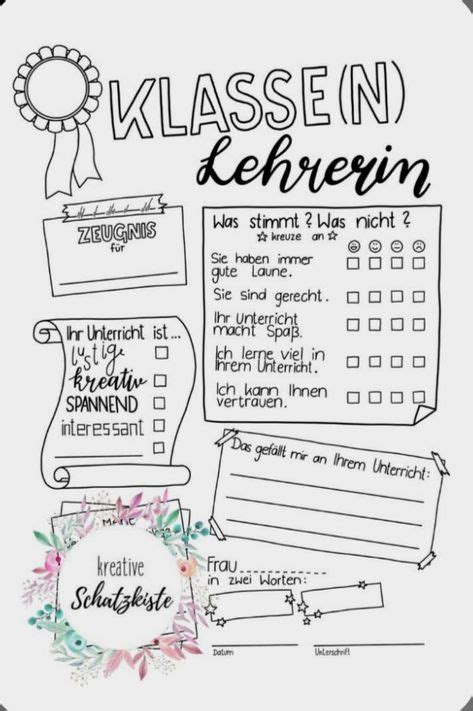 KLASSE(N)
Lehrerin
ZEUGNIS
für
Was stimmt? Was nicht?
kreuze an
Sie haben immer
gute Laune.
Sie sind gerecht.
Ihr Unterricht
macht Spaß.
Ich lerne viel in
Ihrem Unterricht.
Ich kann Ihnen
vertrauen.
Ihr Unterricht ist...
lustig
kreativ
SPANNEND
interessant
Das gefällt mir an Ihrem Unterricht:
kreative
Schatzkiste
Frau
in zwei Worten:
Datum
Unterschrift